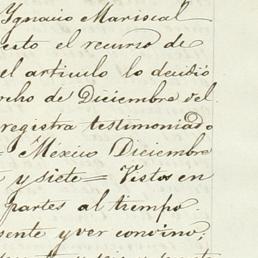 Ygnacio Mariscal
esto el recurso de
el articulo lo decidió
cho de Diciembre del
registra testimoniado
México Diciembre
y siete = Vistos en
partes al tiempo
sente y ver convino;